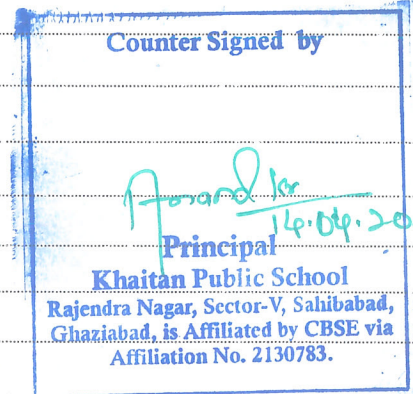 Counter Signed by
Anand kr
14.04.20
Principal
Khaitan Public School
Rajendra Nagar, Sector-V, Sahibabad,
Ghaziabad, is Affiliated by CBSE via
Affiliation No. 2130783.